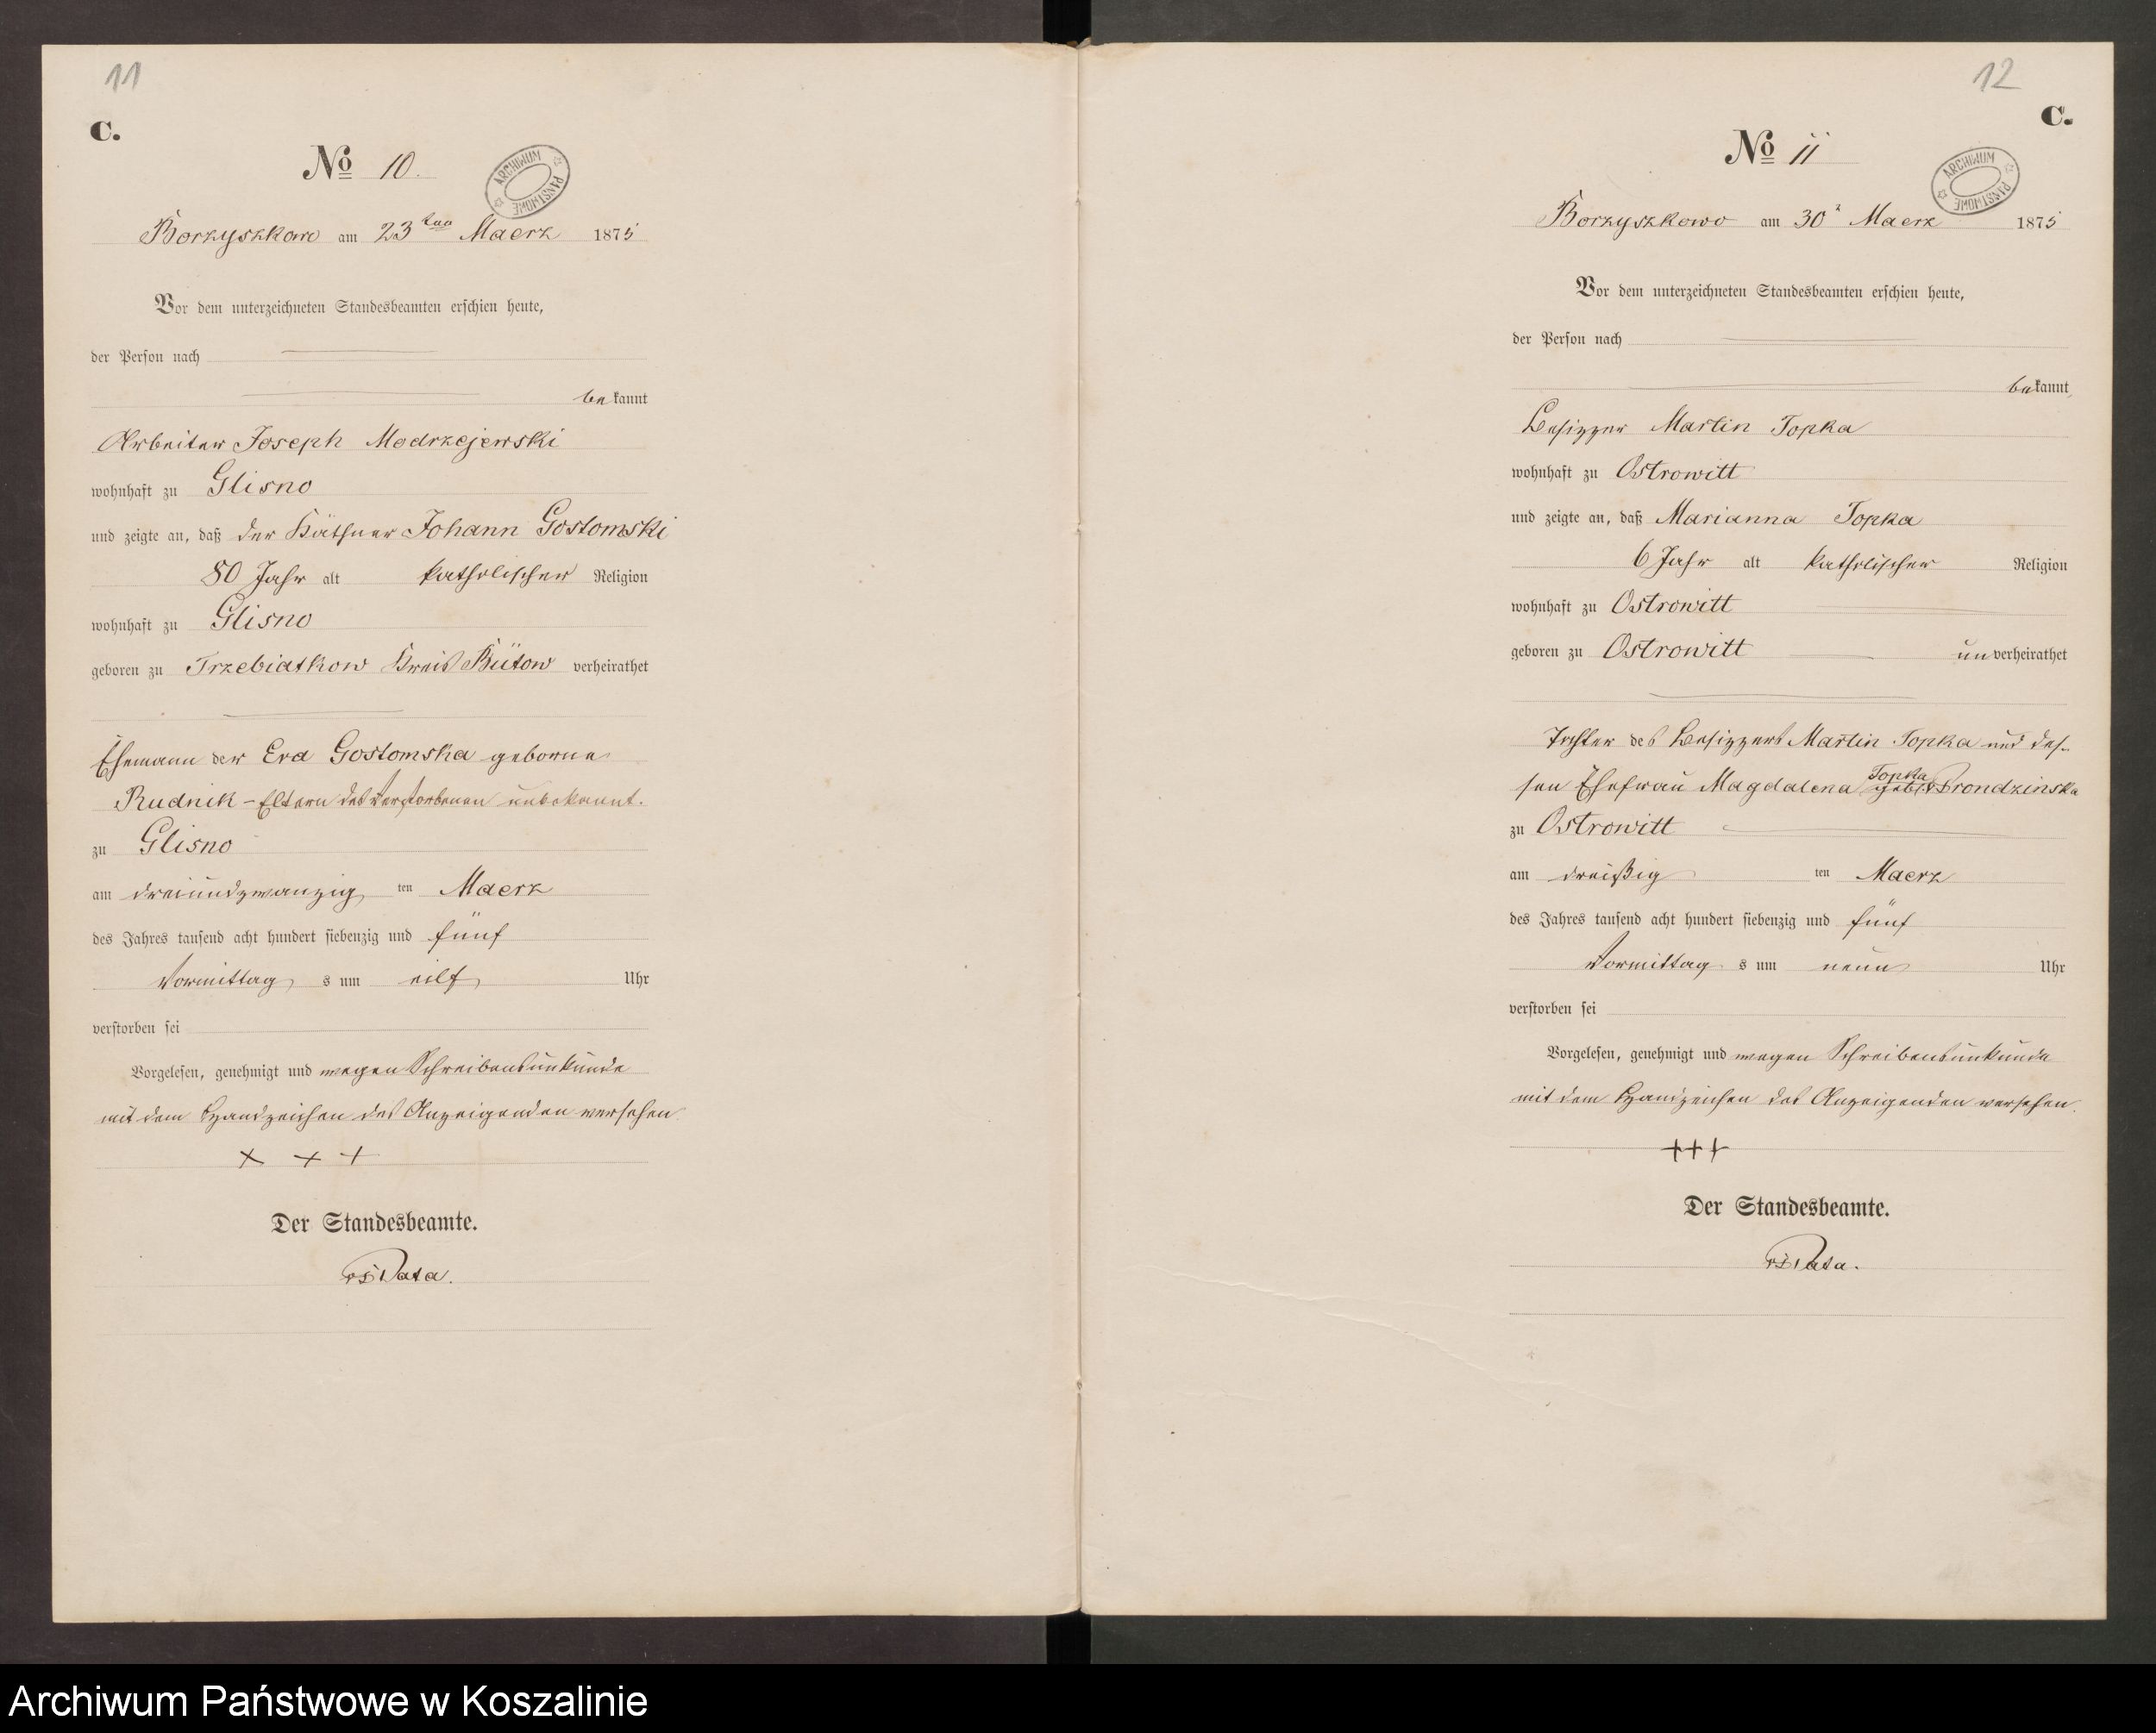 11
C.
No 10.
ARCHIWUM PAŃSTWOWE
Borzyszkowo am 23ten Maerz 1875
Vor dem unterzeichneten Standesbeamten erschien heute,
der Person nach
bekannt
Arbeiter Joseph Modrzejewski
wohnhaft zu Glisno
und zeigte an, daß der Käthner Johann Gostomski
80 Jahr alt katholischer Religion
wohnhaft zu Glisno
geboren zu Trzebiatkow Kreis Bütow verheirathet
Ehemann der Eva Gostomska geborne
Rudnik - Eltern des Verstorbenen unbekannt.
zu Glisno
am dreiundzwanzig ten Maerz
des Jahres tausend acht hundert siebenzig und fünf
Vormittag s um eilf Uhr
verstorben sei
Vorgelesen, genehmigt und wegen Schreibensunkunde
mit dem Handzeichen des Anzeigenden versehen.
+ + +
Der Standesbeamte.
12
C.
No 11
ARCHIWUM PAŃSTWOWE
Borzyszkowo am 30 Maerz 1875
Vor dem unterzeichneten Standesbeamten erschien heute,
der Person nach
bekannt,
Besizzer Martin Topka
wohnhaft zu Ostrowitt
und zeigte an, daß Marianna Topka
6 Jahr alt katholischer Religion
wohnhaft zu Ostrowitt
geboren zu Ostrowitt unverheirathet
Tochter des Besizzers Martin Topka und des-
sen Ehefrau Magdalena Topka geb. Prondzinska
zu Ostrowitt
am dreißig ten Maerz
des Jahres tausend acht hundert siebenzig und fünf
Vormittag s um neun Uhr
verstorben sei
Vorgelesen, genehmigt und wegen Schreibensunkunde
mit dem Handzeichen des Anzeigenden versehen.
+++
Der Standesbeamte.
Archiwum Państwowe w Koszalinie